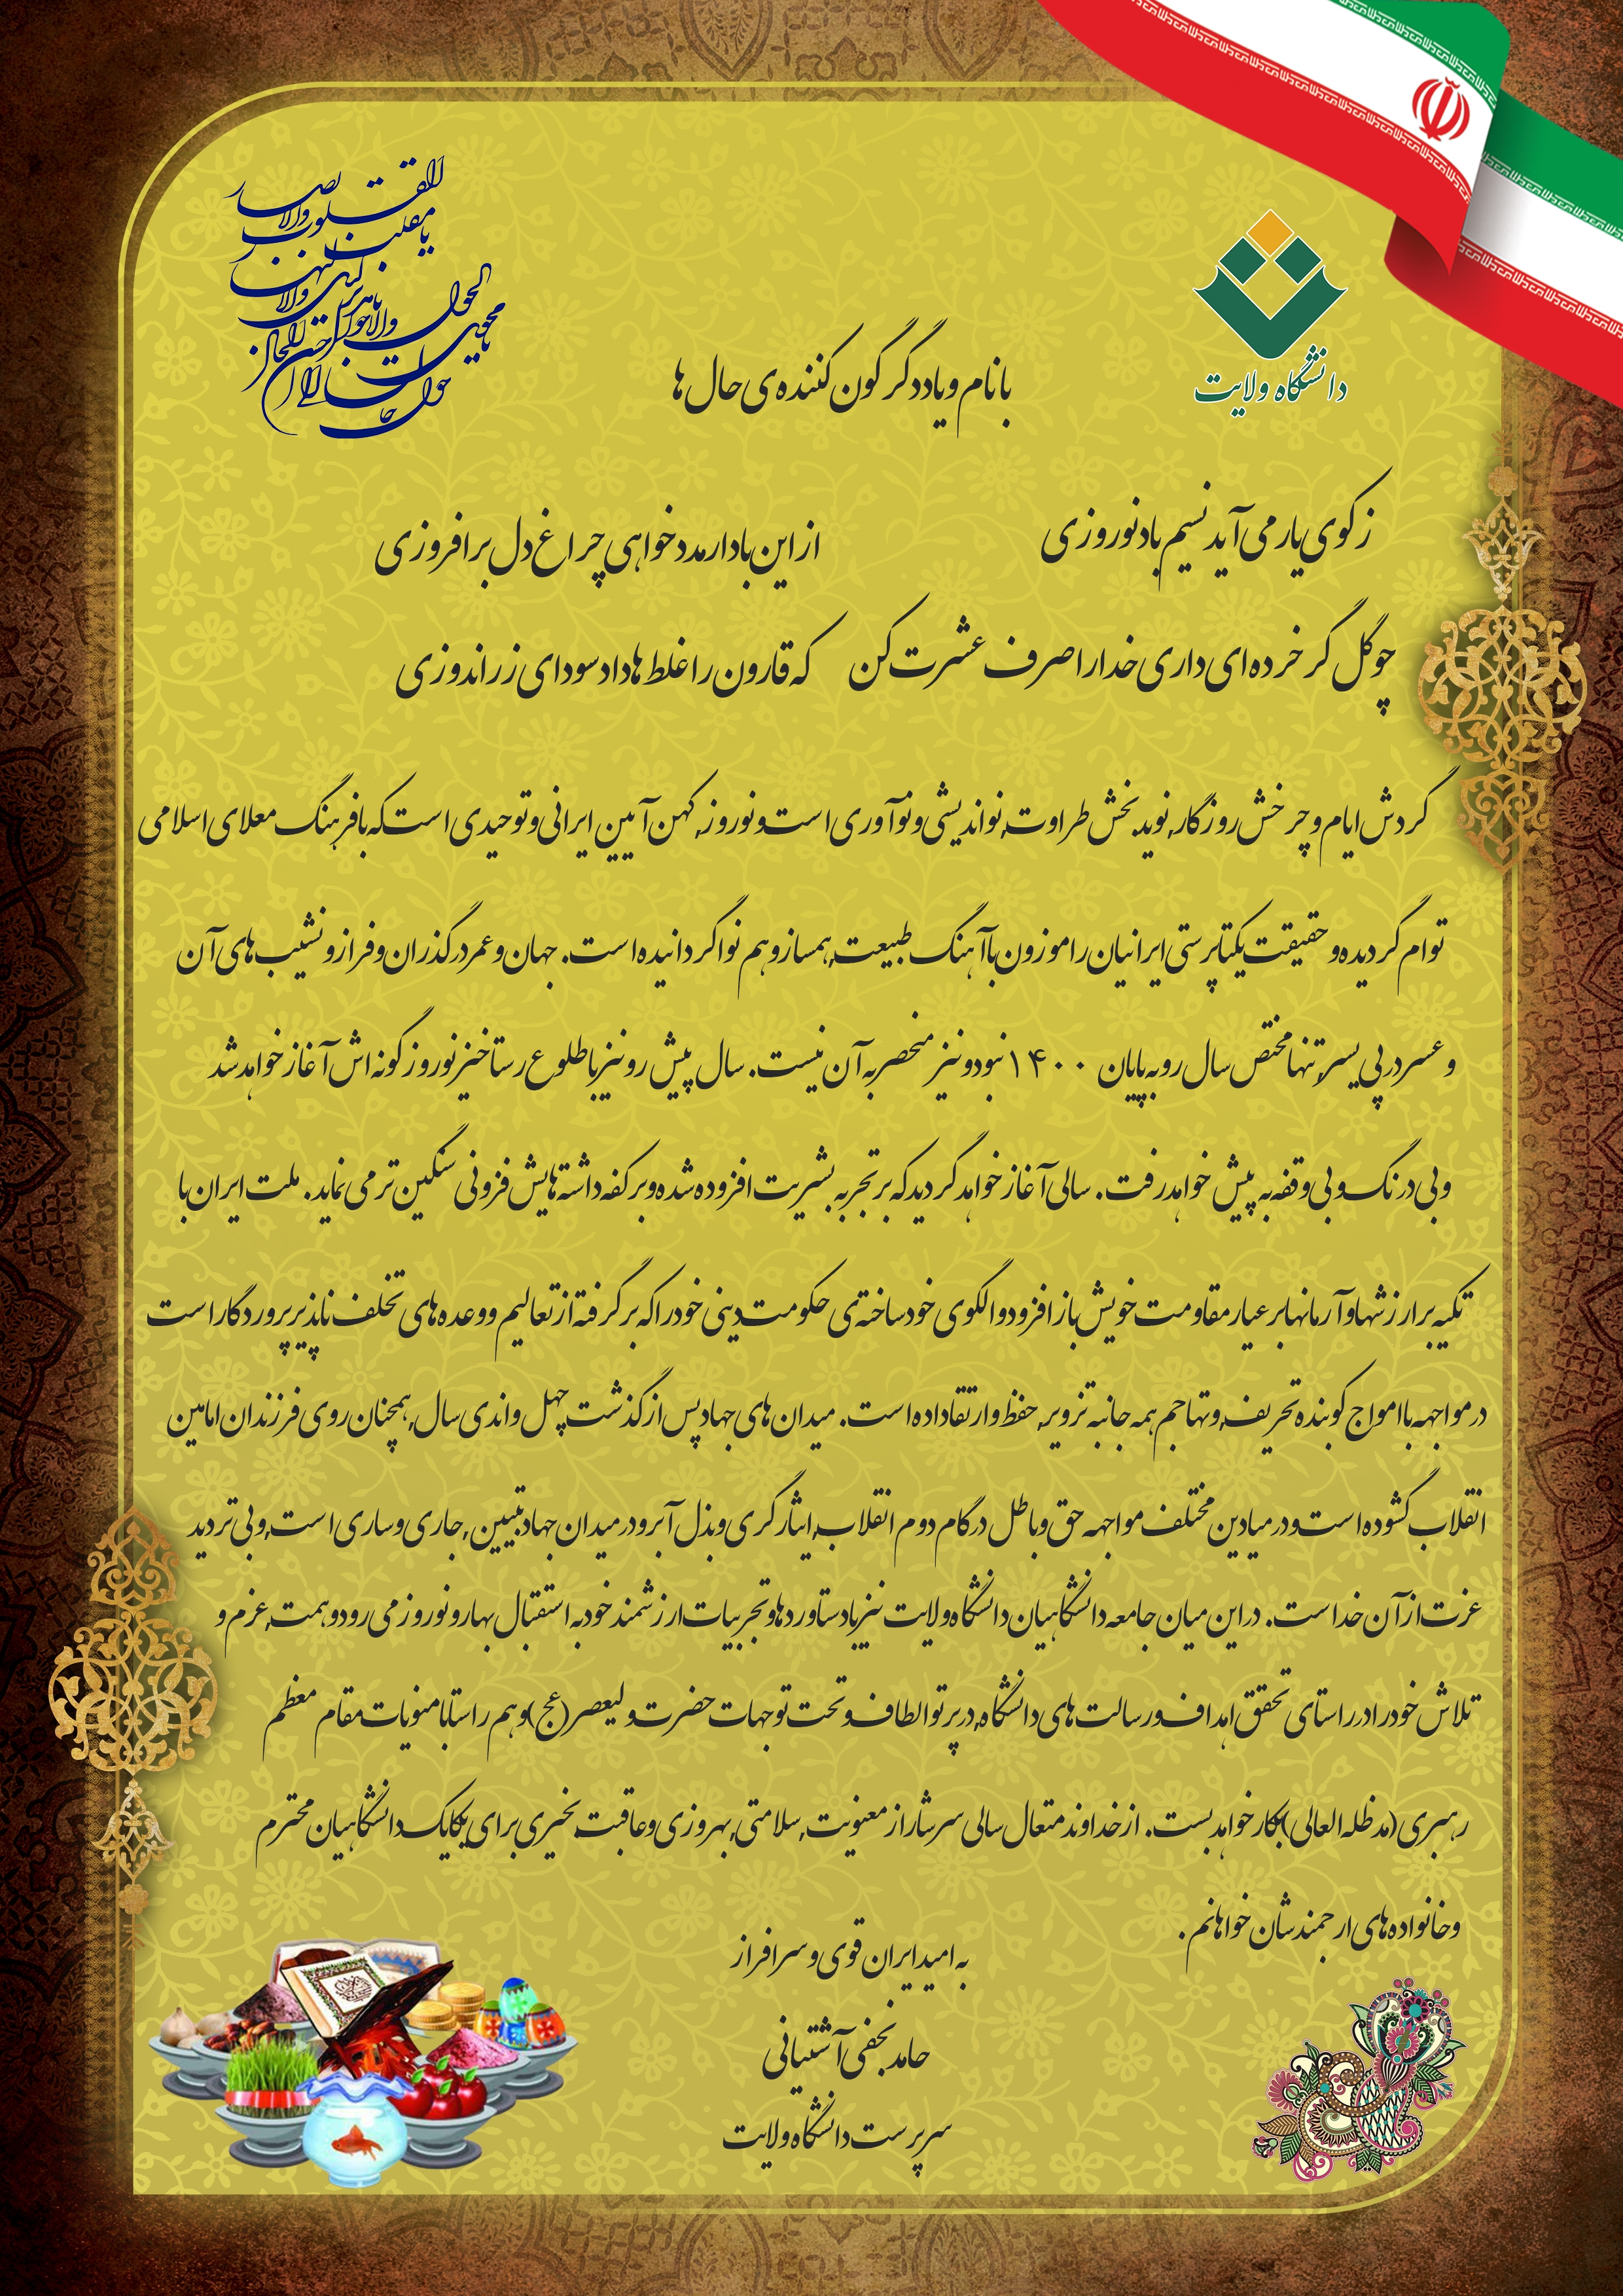 یا مقلب القلوب والابصار
یا مدبر اللیل والنهار
یا محول الحول والاحوال
حول حالنا الی احسن الحال
دانشگاه ولایت
با نام و یاد دگرگون کننده ی حال ها
ز کوی یار می آید نسیم باد نوروزی از این باد ار مدد خواهی چراغ دل برافروزی
چو گل گر خرده ای داری خدارا صرف عشرت کن که قارون را غلط ها داد سودای زراندوزی
گردش ایام و چرخش روزگار، نوید بخش طراوت، نواندیشی و نوآوری است و نوروز، کهن آیین ایرانی و توحیدی است که با فرهنگ معلای اسلامی
توام گردیده و حقیقت یکتاپرستی ایرانیان را موزون با آهنگ طبیعت، همساز و هم نوا گردانیده است. جهان و عمر در گذران و فراز و نشیب های آن
و عسر در پی یسر، تنها مختص سال رو به پایان ۱۴۰۰ نبود و نیز منحصر به آن نیست. سال پیش رو نیز با طلوع رستاخیز نوروز گونه اش آغاز خواهد شد
و بی درنگ و بی وقفه به پیش خواهد رفت. سالی آغاز خواهد گردید که بر تجربه بشریت افزوده شده و بر کفه داشته هایش فزونی سنگین تر می نماید. ملت ایران با
تکیه بر ارزشها و آرمانها بر عیار مقاومت خویش باز افزود و الگوی خود ساخته ی حکومت دینی خود را که برگرفته از تعالیم و وعده های تخلف ناپذیر پروردگار است
در مواجهه با امواج کوبنده تحریف، و تهاجم همه جانبه تزویر، حفظ و ارتقا داده است. میدان های جهاد پس از گذشت چهل و اندی سال، همچنان روی فرزندان امامین
انقلاب گشوده است و در میادین مختلف مواجهه حق و باطل در گام دوم انقلاب، ایثارگری و بذل آبرو در میدان جهاد تبیین، جاری و ساری است، و بی تردید
عزت از آن خداست. در این میان جامعه دانشگاهیان دانشگاه ولایت نیز با دستاوردها و تجربیات ارزشمند خود به استقبال بهار و نوروز می رود و همت، عزم و
تلاش خود را در راستای تحقق اهداف و رسالت های دانشگاه، در پرتو الطاف و تحت توجهات حضرت ولیعصر (عج) و هم راستا با منویات مقام معظم
رهبری (مدظله العالی) بکار خواهد بست. از خداوند متعال سالی سرشار از معنویت، سلامتی، بهروزی و عاقبت بخیری برای یکایک دانشگاهیان محترم
و خانواده های ارجمندشان خواهانم.
به امید ایران قوی و سرافراز
حامد نجفی آشتیانی
سرپرست دانشگاه ولایت